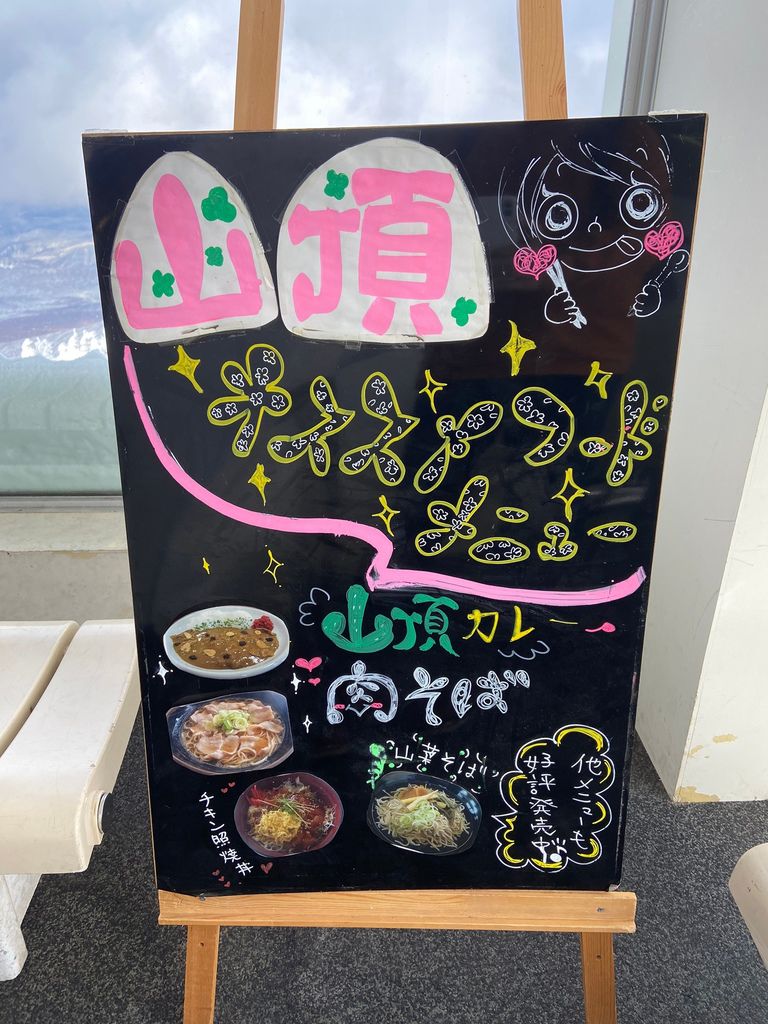 山頂
フード
メニュー
山頂カレー
肉そば
山菜そば
チキン照焼丼
他メニューも
好評発売中♪